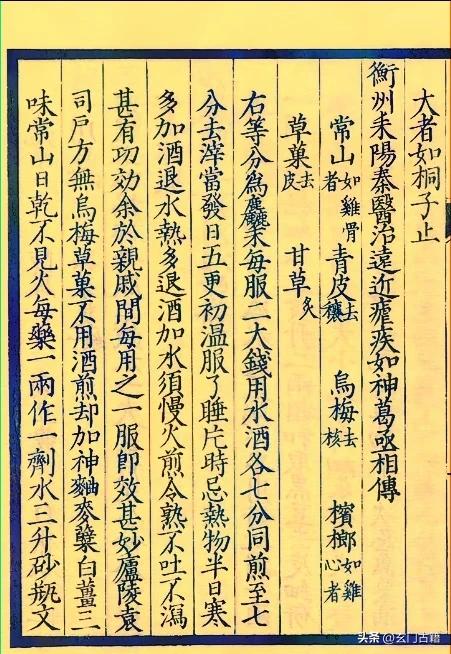 大者如桐子止
衡州耒陽秦醫治遠近瘧疾如神葛亟相傳
常山如雞骨者 青皮去穰 烏梅去核 檳榔如雞心者
草菓去皮 甘草炙
右等分為麤末每服二大錢用水酒各七分同煎至七
分去滓當發日五更初温服了睡片時忌熱物半日寒
多加酒退水熱多退酒加水須慢火煎令熟不吐不瀉
甚有功効余於親戚間每用之一服即效甚妙廬陵袁
司戶方無烏梅草菓不用酒煎却加神麯麥櫱白薑三
味常山日乾不見火每藥一兩作一劑水三升砂瓶文
头条 @玄门古籍